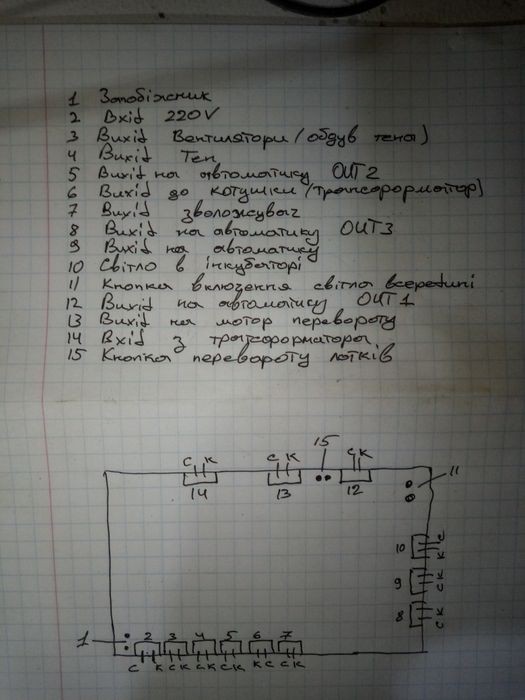 1 Запобіжник
2 Вхід 220V
3 Вихід Вентилятори (обдув тена)
4 Вихід Тен
5 Вихід на автоматику OUT2
6 Вихід до котушки (трансформатор)
7 Вихід зволожувач
8 Вихід на автоматику OUT3
9 Вихід на автоматику
10 Світло в інкубаторі
11 Кнопка включення світла всередині
12 Вихід на автоматику OUT1
13 Вихід на мотор перевороту
14 Вхід з трансформатора
15 Кнопка перевороту лотків
15
С К С К С К
11
14 13 12
10 С К
9 С К
8 С К
1 2 3 4 5 6 7
С К С К С К С К К С С К